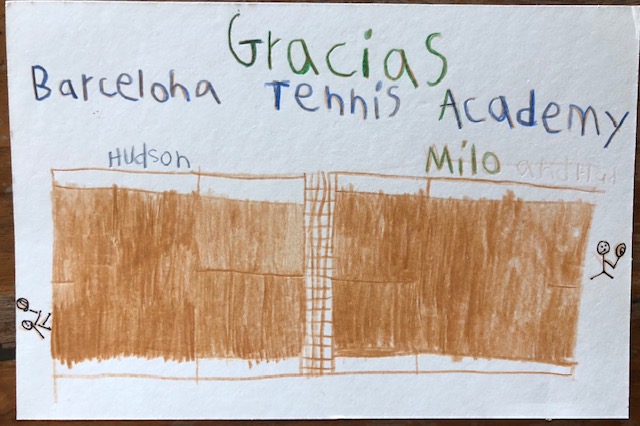 Gracias
Barcelona Tennis Academy
Hudson Milo and